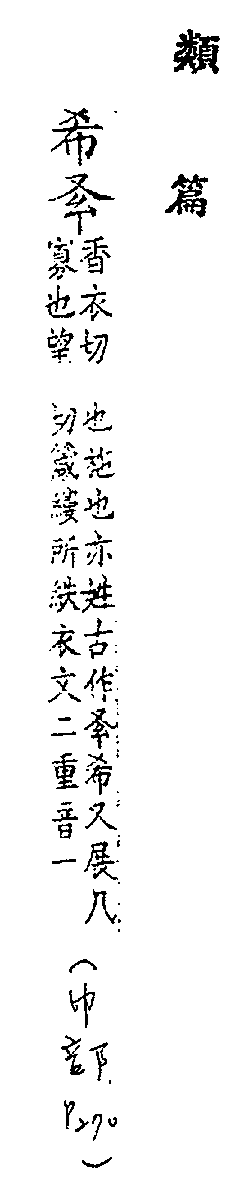 類篇
希
香衣切
寡也望
也施也亦姓古作希又展几
切箴縷所紩衣文二重音一
(巾部 P270)